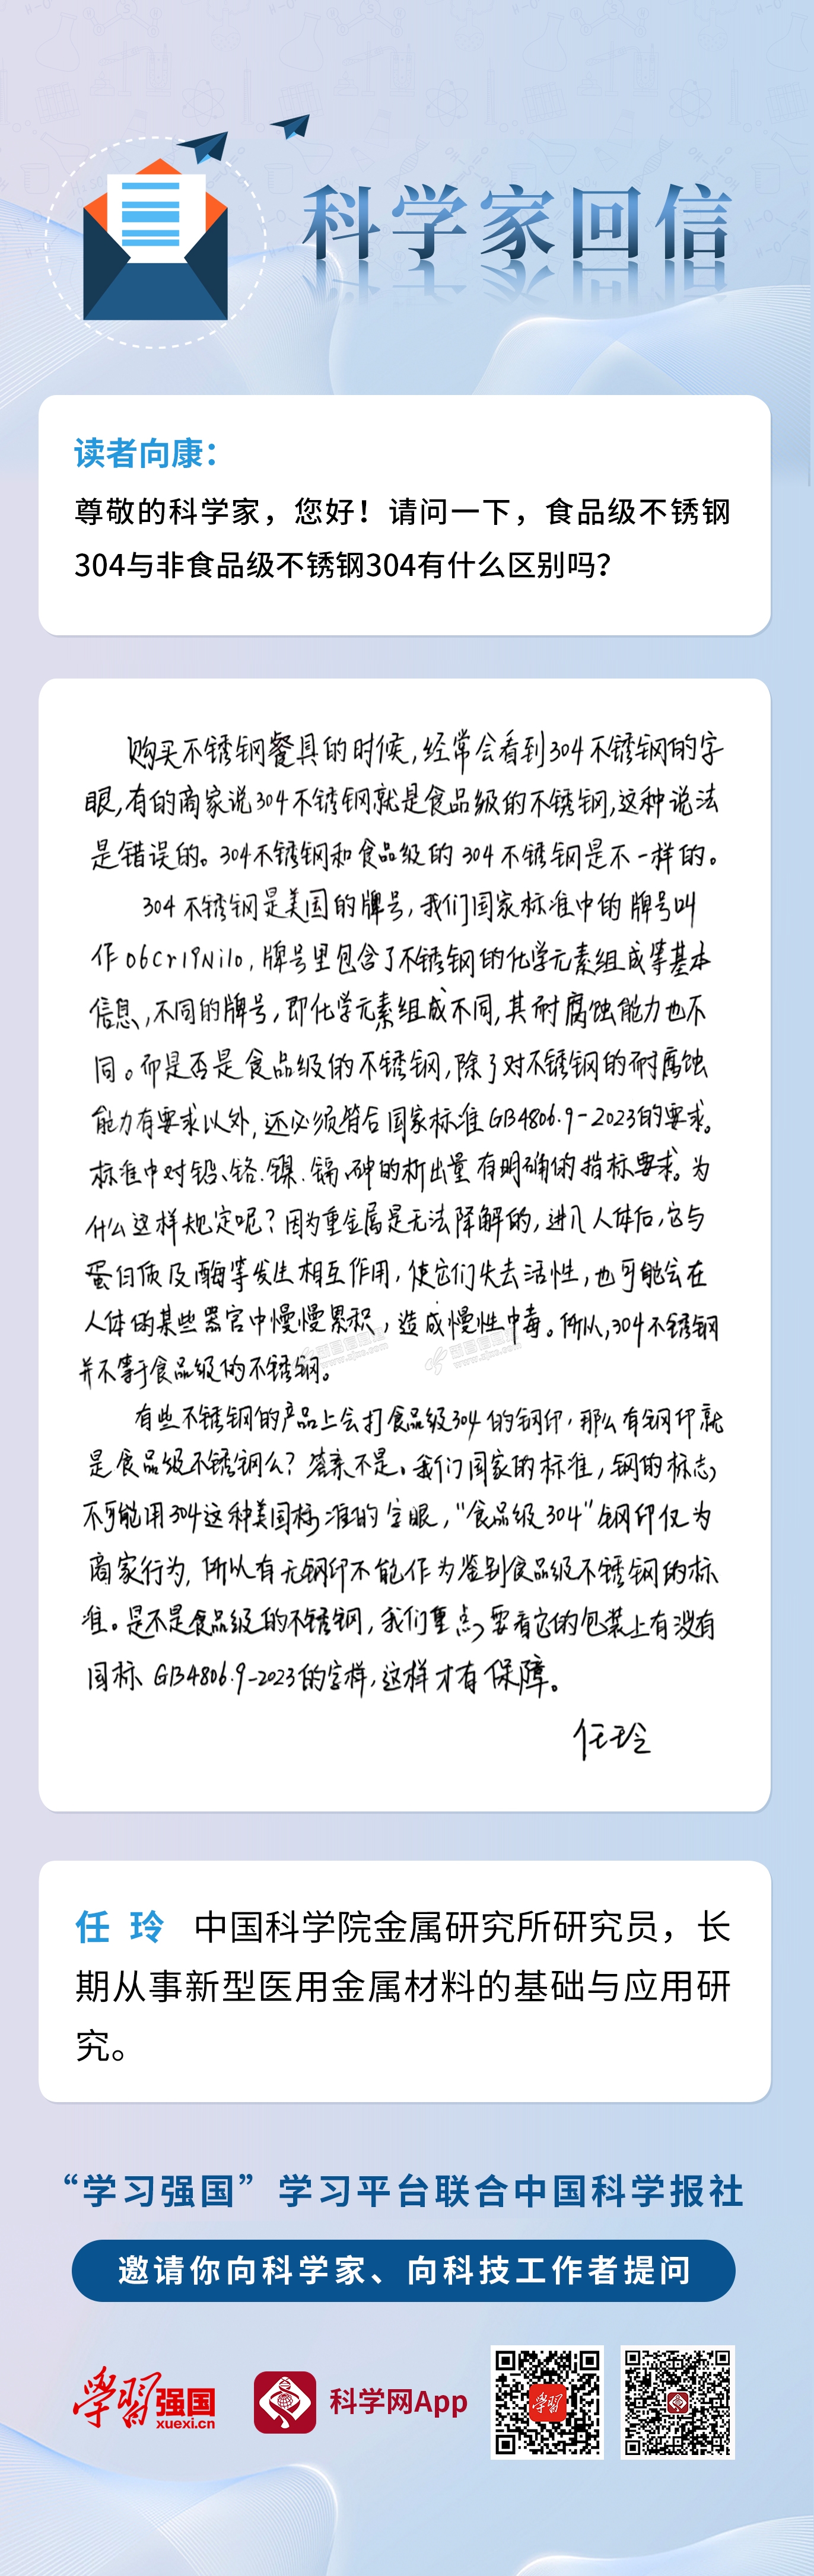 科学家回信
读者向康：
尊敬的科学家，您好！请问一下，食品级不锈钢
304与非食品级不锈钢304有什么区别吗？
购买不锈钢餐具的时候，经常会看到304不锈钢的字
眼，有的商家说304不锈钢就是食品级的不锈钢，这种说法
是错误的。304不锈钢和食品级的304不锈钢是不一样的。
304不锈钢是美国的牌号，我们国家标准中的牌号叫
作06Cr19Ni10，牌号里包含了不锈钢的化学元素组成等基本
信息，不同的牌号，即化学元素组成不同，其耐腐蚀能力也不
同。而是否是食品级的不锈钢，除了对不锈钢的耐腐蚀
能力有要求以外，还必须符合国家标准GB4806.9-2023的要求。
标准中对铅、铬、镍、镉、砷的析出量有明确的指标要求。为
什么这样规定呢？因为重金属是无法降解的，进入人体后，它与
蛋白质及酶等发生相互作用，使它们失去活性，也可能会在
人体的某些器官中慢慢累积，造成慢性中毒。所以，304不锈钢
并不等于食品级的不锈钢。
有些不锈钢的产品上会打食品级304的钢印，那么有钢印就
是食品级不锈钢么？答案不是。我们国家的标准，钢的标志，
不可能用304这种美国标准的字眼，“食品级304”钢印仅为
商家行为，所以有无钢印不能作为鉴别食品级不锈钢的标
准。是不是食品级的不锈钢，我们重点要看它的包装上有没有
国标GB4806.9-2023的字样，这样才有保障。
任玲
任 玲 中国科学院金属研究所研究员，长
期从事新型医用金属材料的基础与应用研
究。
“学习强国”学习平台联合中国科学报社
邀请你向科学家、向科技工作者提问
学习强国 科学网App
xuexi.cn